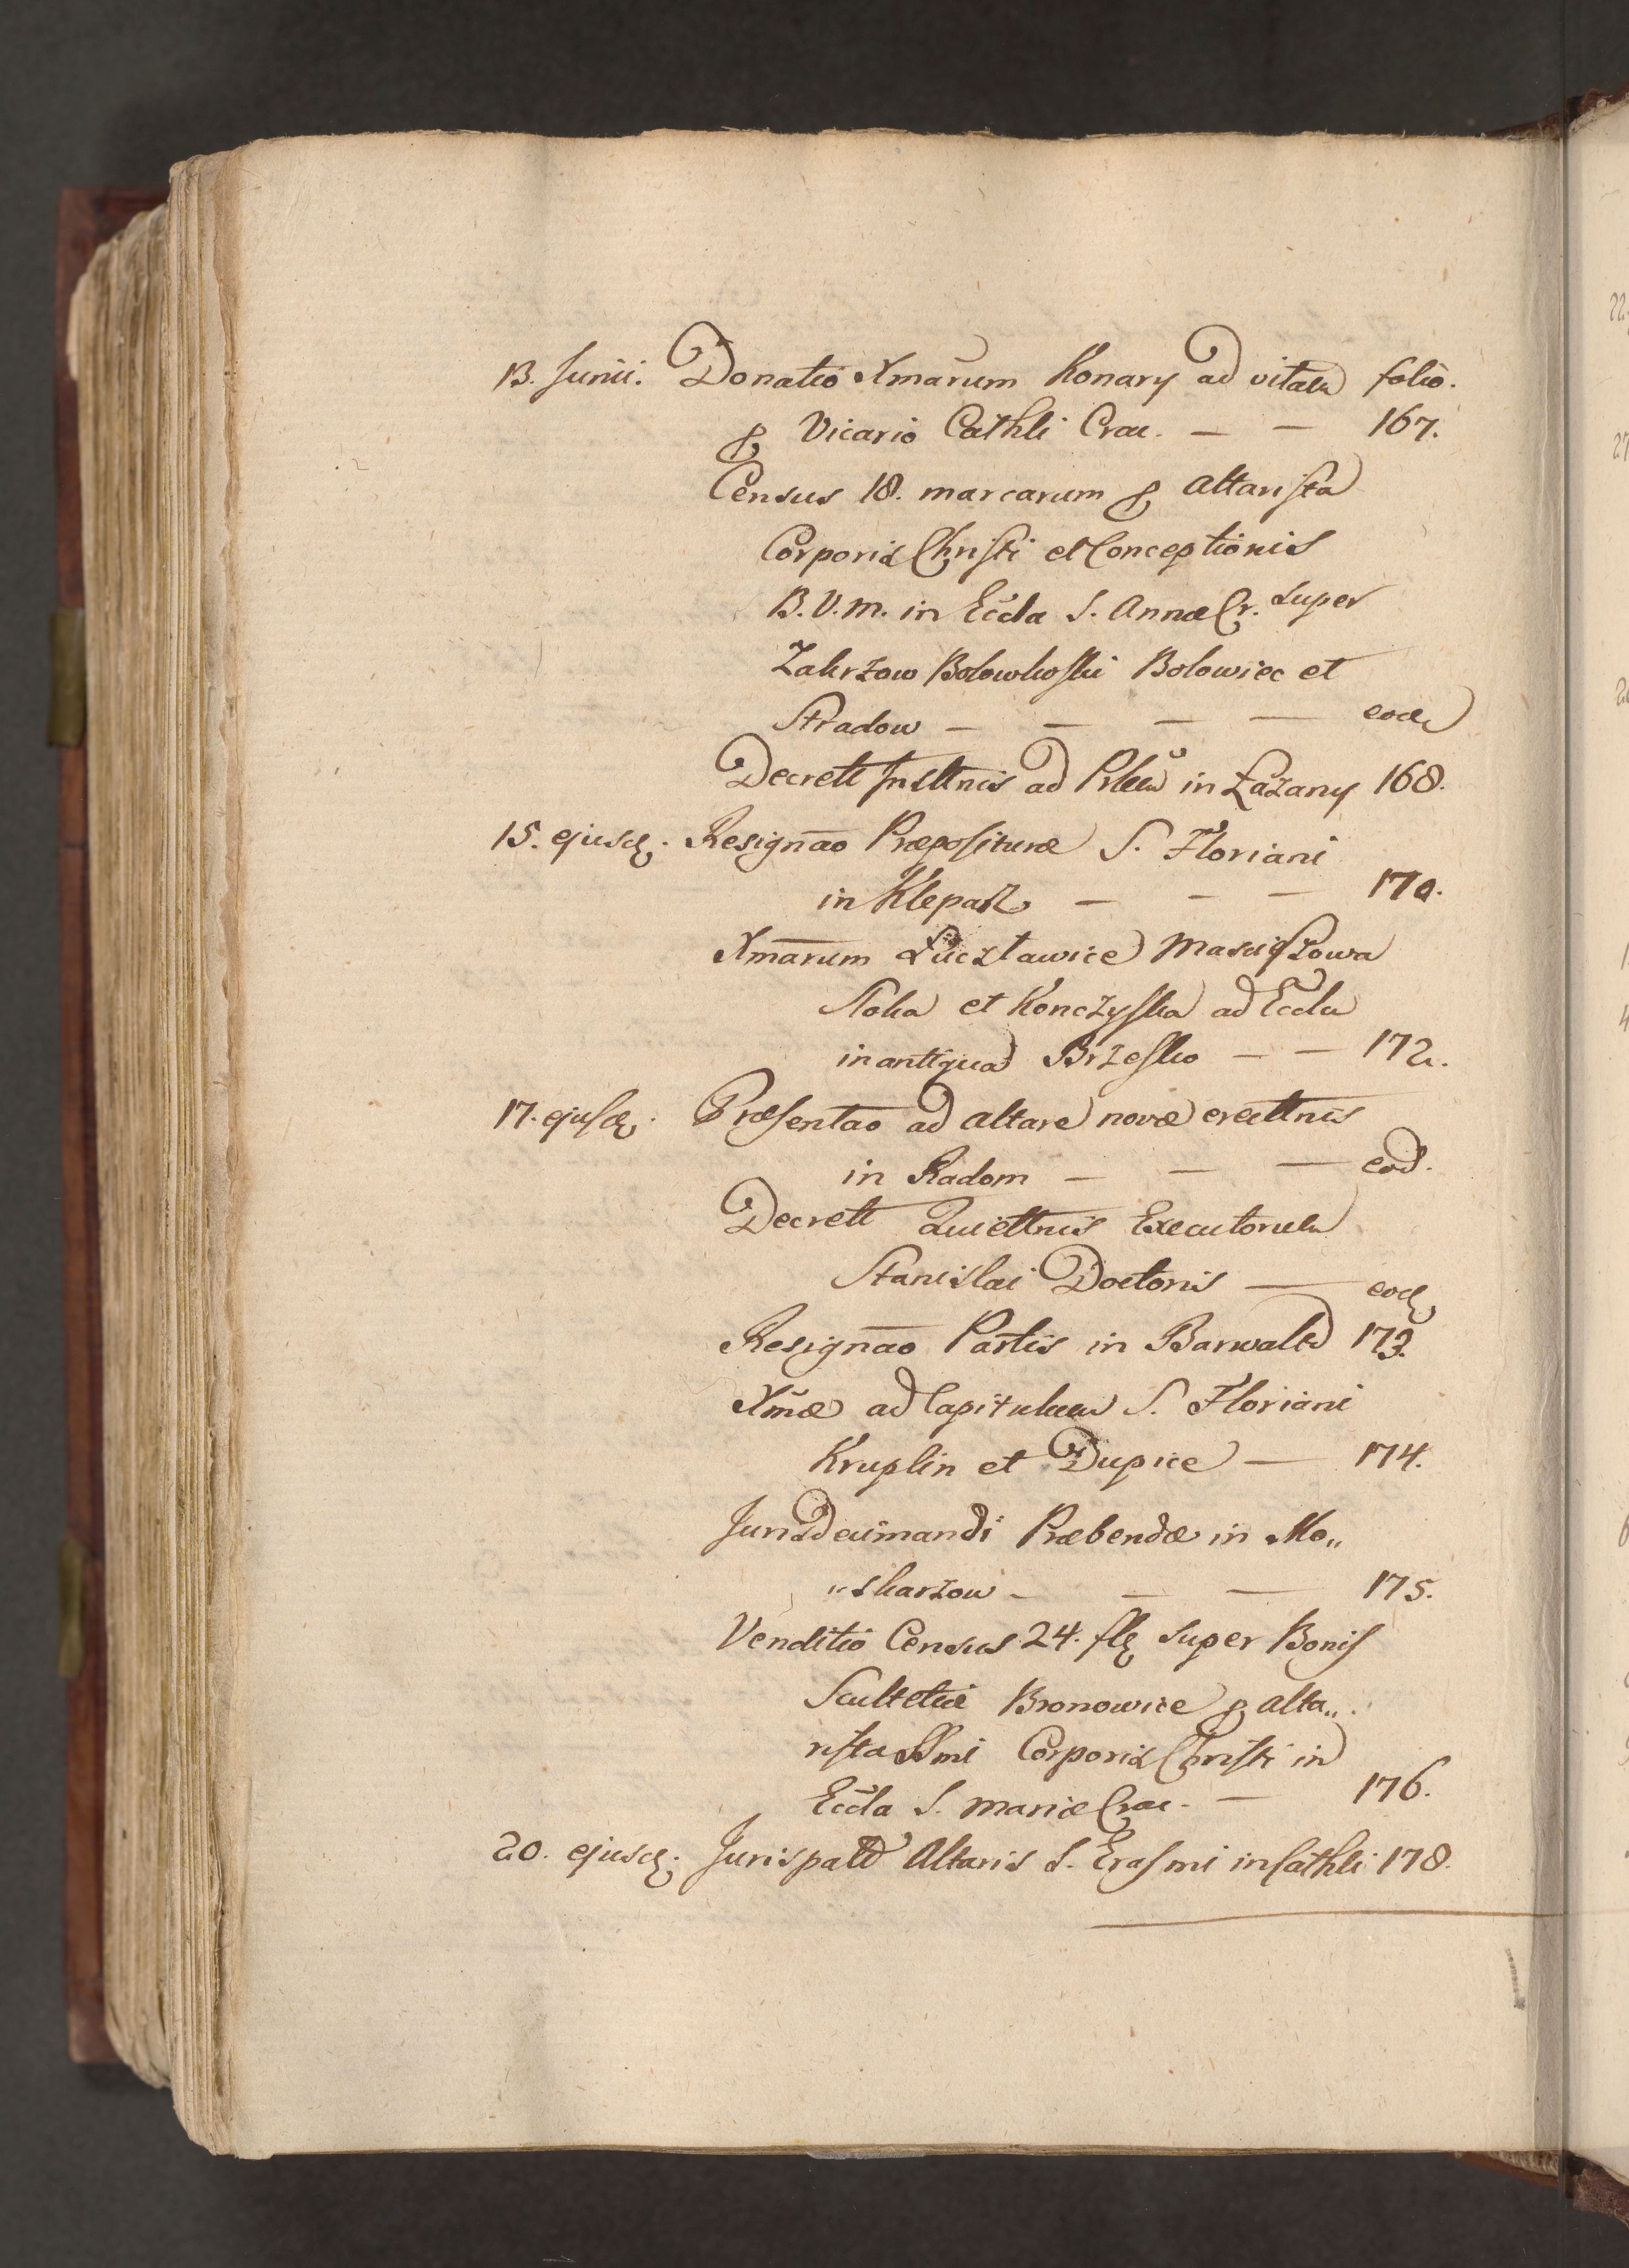 13. Junii. Donatio Xmarum Konary ad vitam folio.
p Vicario Cathli Crac. — — 167.
Census 18. marcarum p Altarista
Corporis Christi et Conceptionis
B.V.M. in Eccla S. Annæ Cr. super
Zakrzow Bolowkoski Bolowiec et
Stradow — — — — eod
Decrett Insttnis ad Plebm in Łazany 168.
15. ejusd. Resignao Præposituræ S. Floriani
in Klepar — — — 170.
Xmarum Łuczlawice
Stoka et Konczyska ad Eccla
in antiqua Brzesko — — 172.
17. ejusd. Præsentao ad altare novæ erecttnis
in Radom — — — eod.
Decrett Quiettnis Executorum
Stanislai Doctoris — eod
Resignao Partis in Barwald 173.
Xmæ ad Capitulum S. Floriani
Kruplin et Dupice — 174.
Juris Decimandi Præbendæ in Mo„
„skarzow — — — 175.
Venditio Census 24. fl super Bonis
Scultetiæ Bronowice p alta„
rista SSmi Corporis Christi in
Eccla S. Mariæ Crac. — 176.
20. ejusd. Jurispatt Altaris S. Erasmi in Cathli 178.